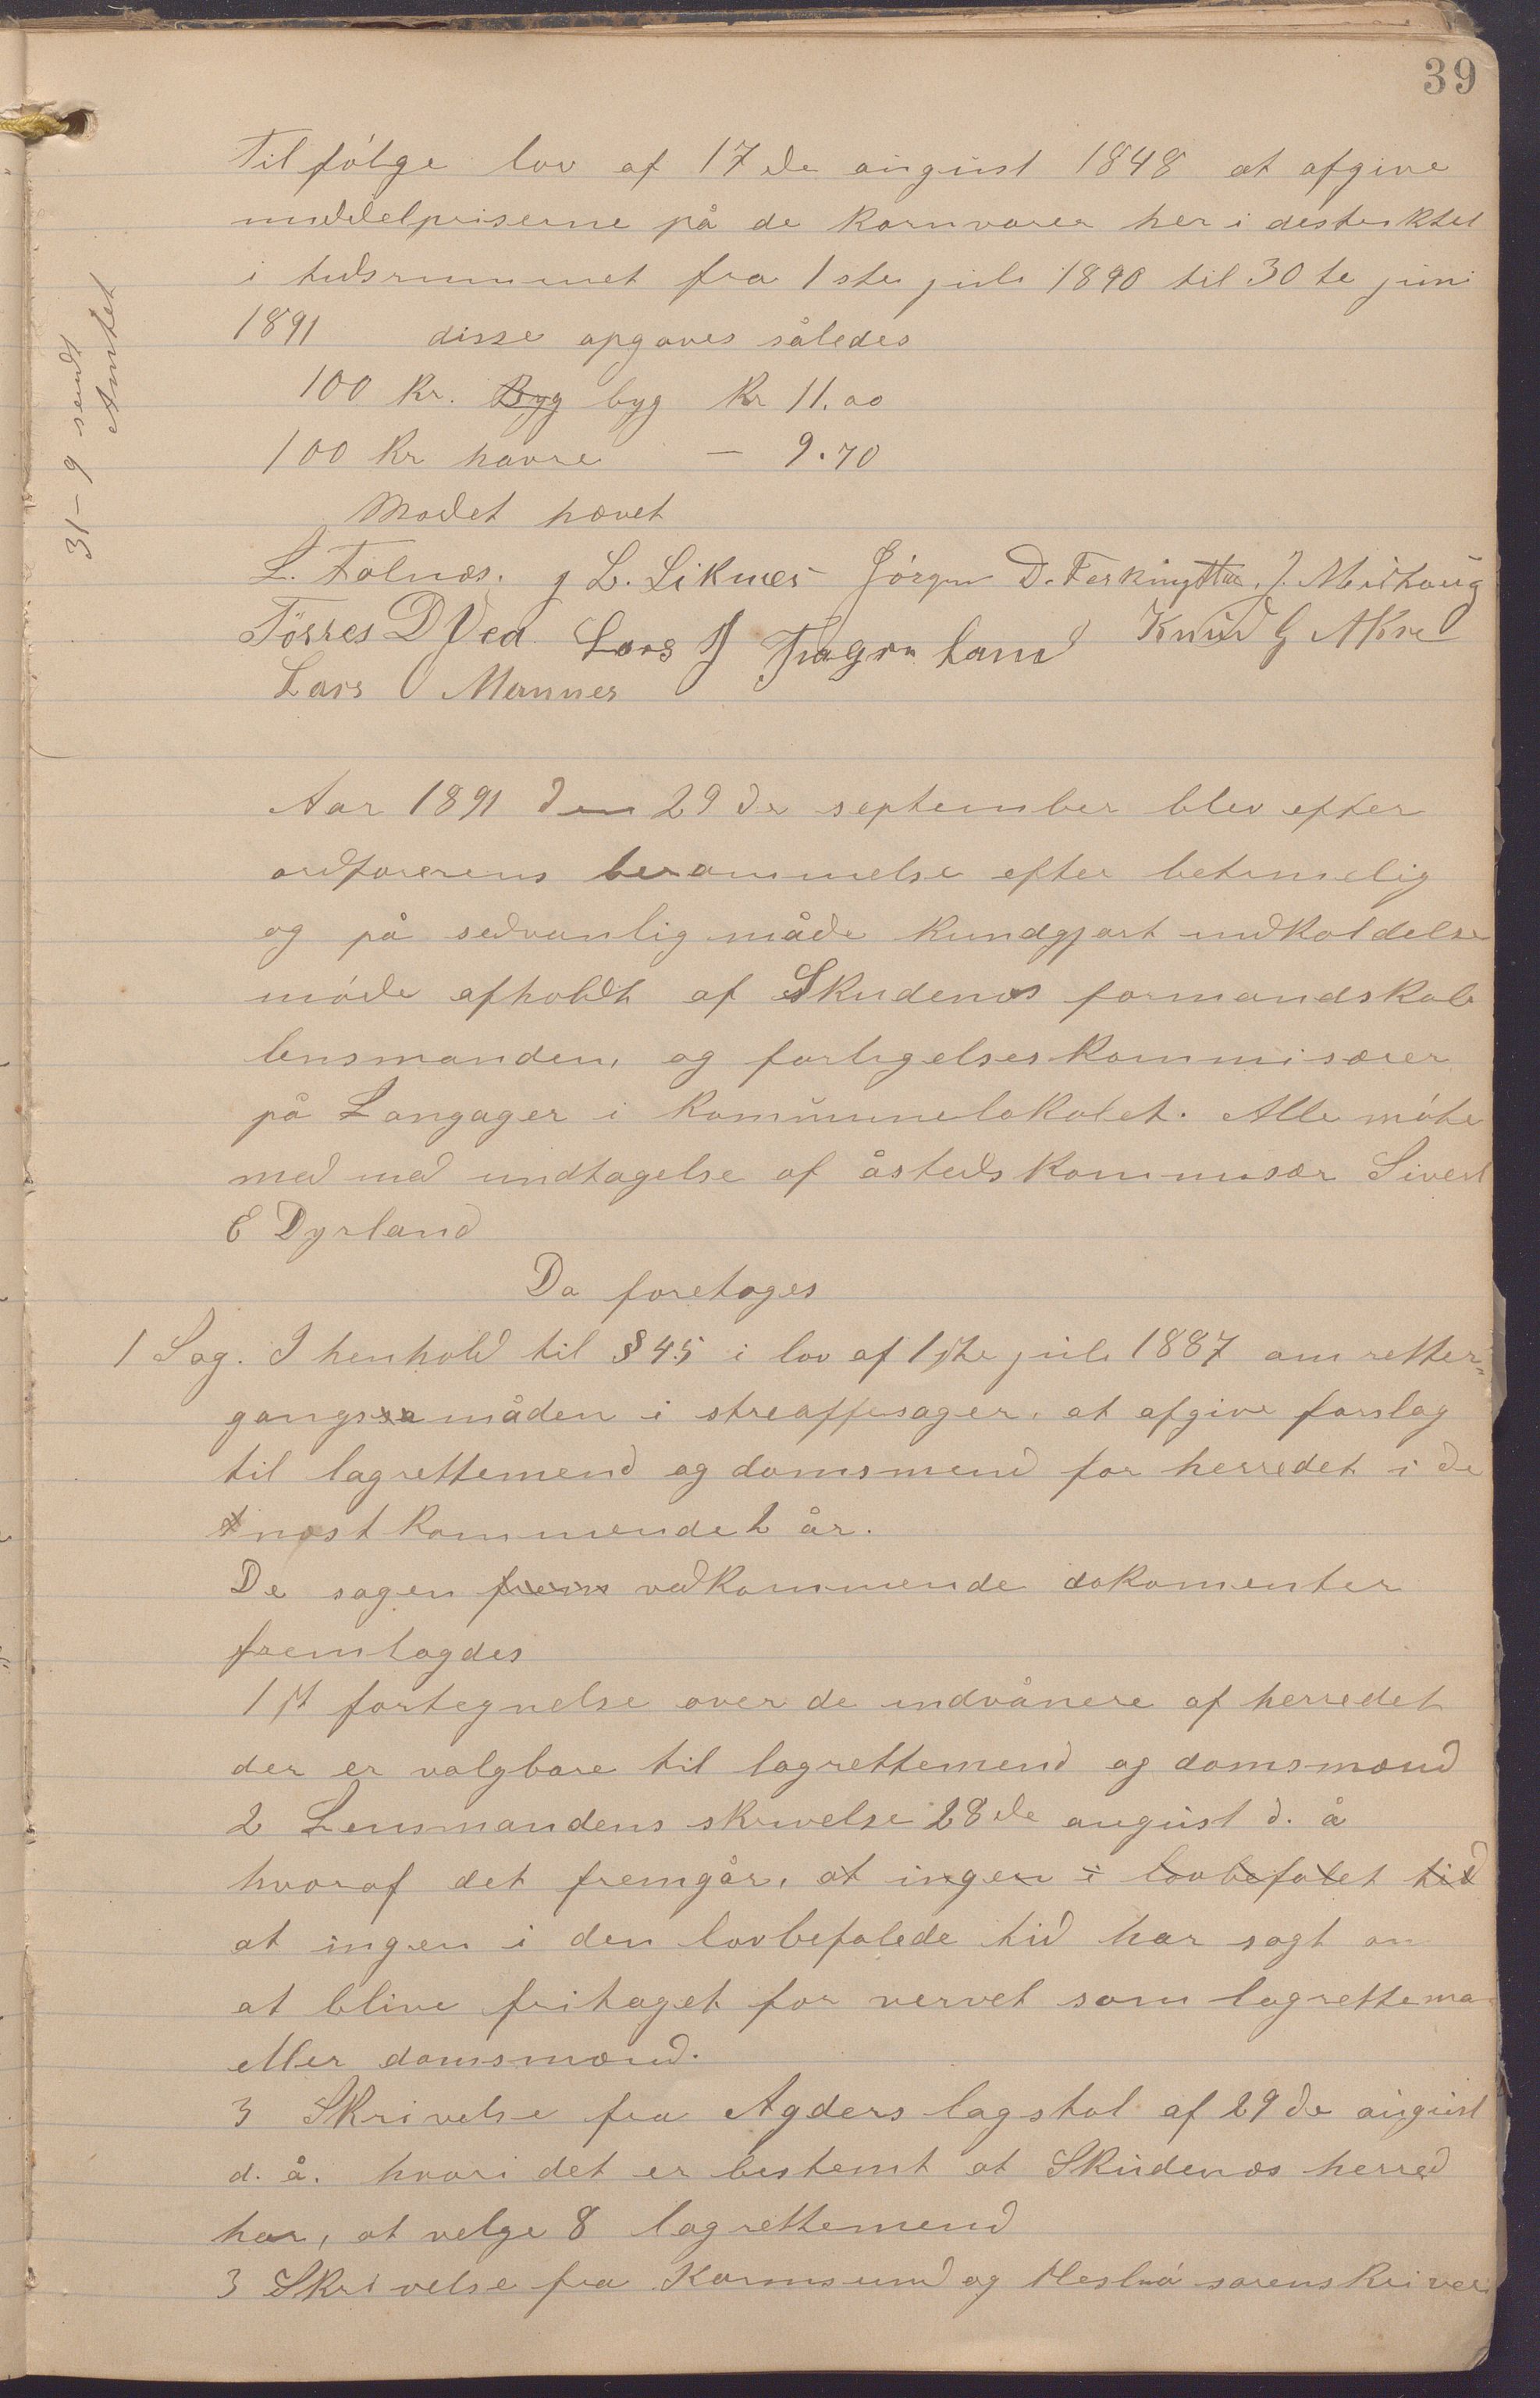 39
Tilfølge lov af 17de august 1848 at afgive
middelpriserne på de kornvarer her i destriktet
i tidsrummet fra 1ste juli 1890 til 30te juni
1891 disse opgaves således
100 Kr. Byg byg Kr 11.00
100 Kr havre — 9.70
Mødet hævet
31-9 sendt
Amtet
L. Falnæs. J L. Liknes Jørgen D. Ferkingstad. J. Midhaug
Törres D Vea Lars J Fagerland Knud G Akre
Lars O Mannes
Aar 1891 den 29de september blev efter
ordførerens berammelse efter betimelig
og på sedvanlig måde kundgjort indkaldelse
møde afholdt af Skudenæs formandskab
lensmanden, og forligelseskommisærer
på Langager i kommunelokalet. Alle møte
med med undtagelse af åstedskommisær Sivert
E Dyrland
Da foretoges
1 Sag. I henhold til § 45 i lov af 1ste juli 1887 om retter=
gangssa måden i streaffesager, at afgive forslag
til lagrettemend og domsmend for herredet i de
t næstkommendet år.
De sagen frem vedkommende dokomenter
fremlagdes
1st fortegnelse over de indvånere af herredet
der er valgbare til lagrettemend og domsmænd
2 Lensmandens skrivelse 28de august d. å
hvoraf det fremgår, at ingen i lovbefalet tid
at ingen i den lovbefalede tid har søgt om
at blive fritaget for vervet som lagrettema
eller domsmænd.
3 Skrivelse fra Agders lagstol af 29de august
d. å. hvori det er bestemt at Skudenæs herred
har, at velge 8 lagrettemend
3 Skrivelse fra Karmsund og Hesbø sorenskriver